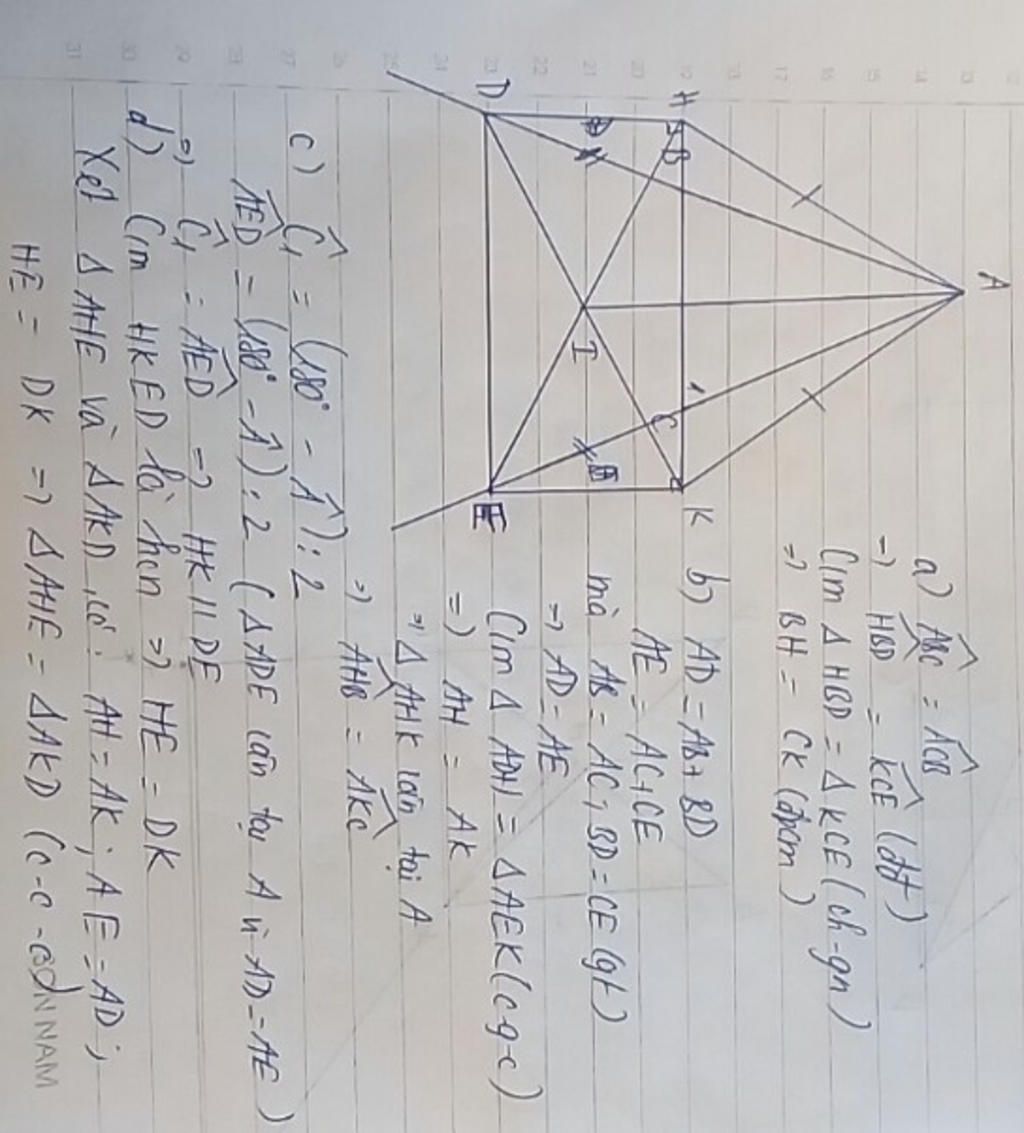 A
H
B
1
C
K
I
D
E
a) ABC = ACB
=> HBD = KCE (đđ)
C/m Δ HBD = Δ KCE (ch-gn)
=> BH = CK (đpcm)
b) AD = AB + BD
AE = AC + CE
mà AB = AC; BD = CE (gt)
=> AD = AE
C/m Δ ADH = Δ AEK (c-g-c)
=> AH = AK
=> Δ AHK cân tại A
=> AHB = AKC
c) C₁ = (180° - A) : 2
AED = (180° - A) : 2 (Δ ADE cân tại A vì AD = AE)
=> C₁ = AED => HK // DE
d) C/m HKED là hcn => HE = DK
Xét Δ AHE và Δ AKD có: AH = AK; AE = AD;
HE = DK => Δ AHE = Δ AKD (c-c-c)
NAM
17
18
19
20
21
22
23
24
25
26
27
28
29
30
31